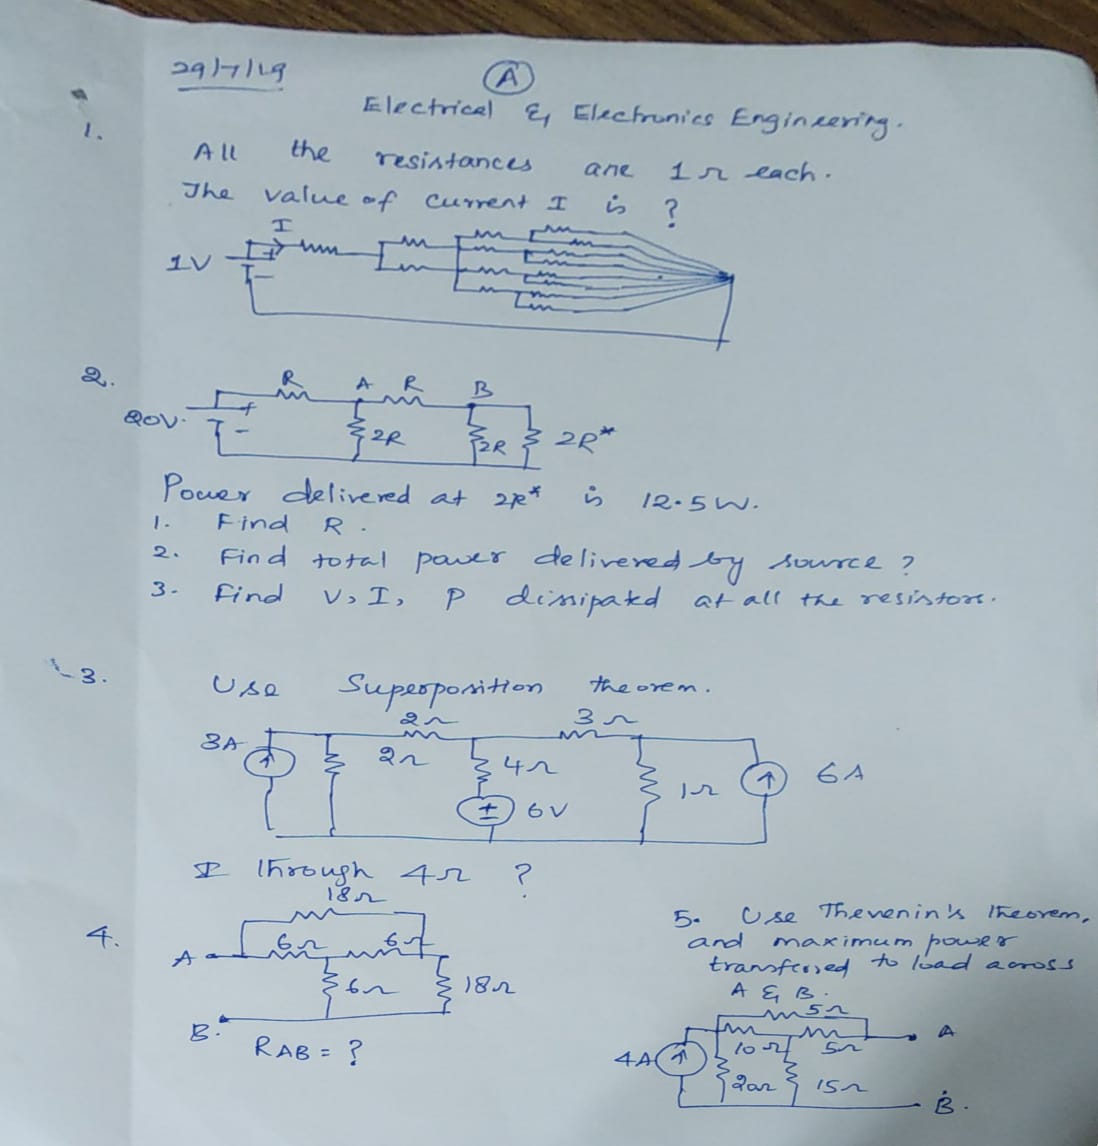 29/7/19
A
Electrical & Electronics Engineering.
1.
All the resistances are 1Ω each.
The value of current I is ?
I
1V
+
-
2.
R A R B
20V.
+
-
2R 2R 2R*
Power delivered at 2R* is 12.5W.
1. Find R.
2. Find total power delivered by source ?
3. Find V, I, P dissipatd at all the resistors.
3.
Use Superposition theorem.
2Ω 3Ω
3A 2Ω 4Ω 1Ω 6A
± 6V
I through 4Ω ?
4.
18Ω
A 6Ω 6Ω
6Ω 18Ω
B.
RAB = ?
5. Use Thevenin's Theorem,
and maximum power
transferred to load across
A & B.
5Ω
A
10Ω 5Ω
4A
20Ω 15Ω
B.